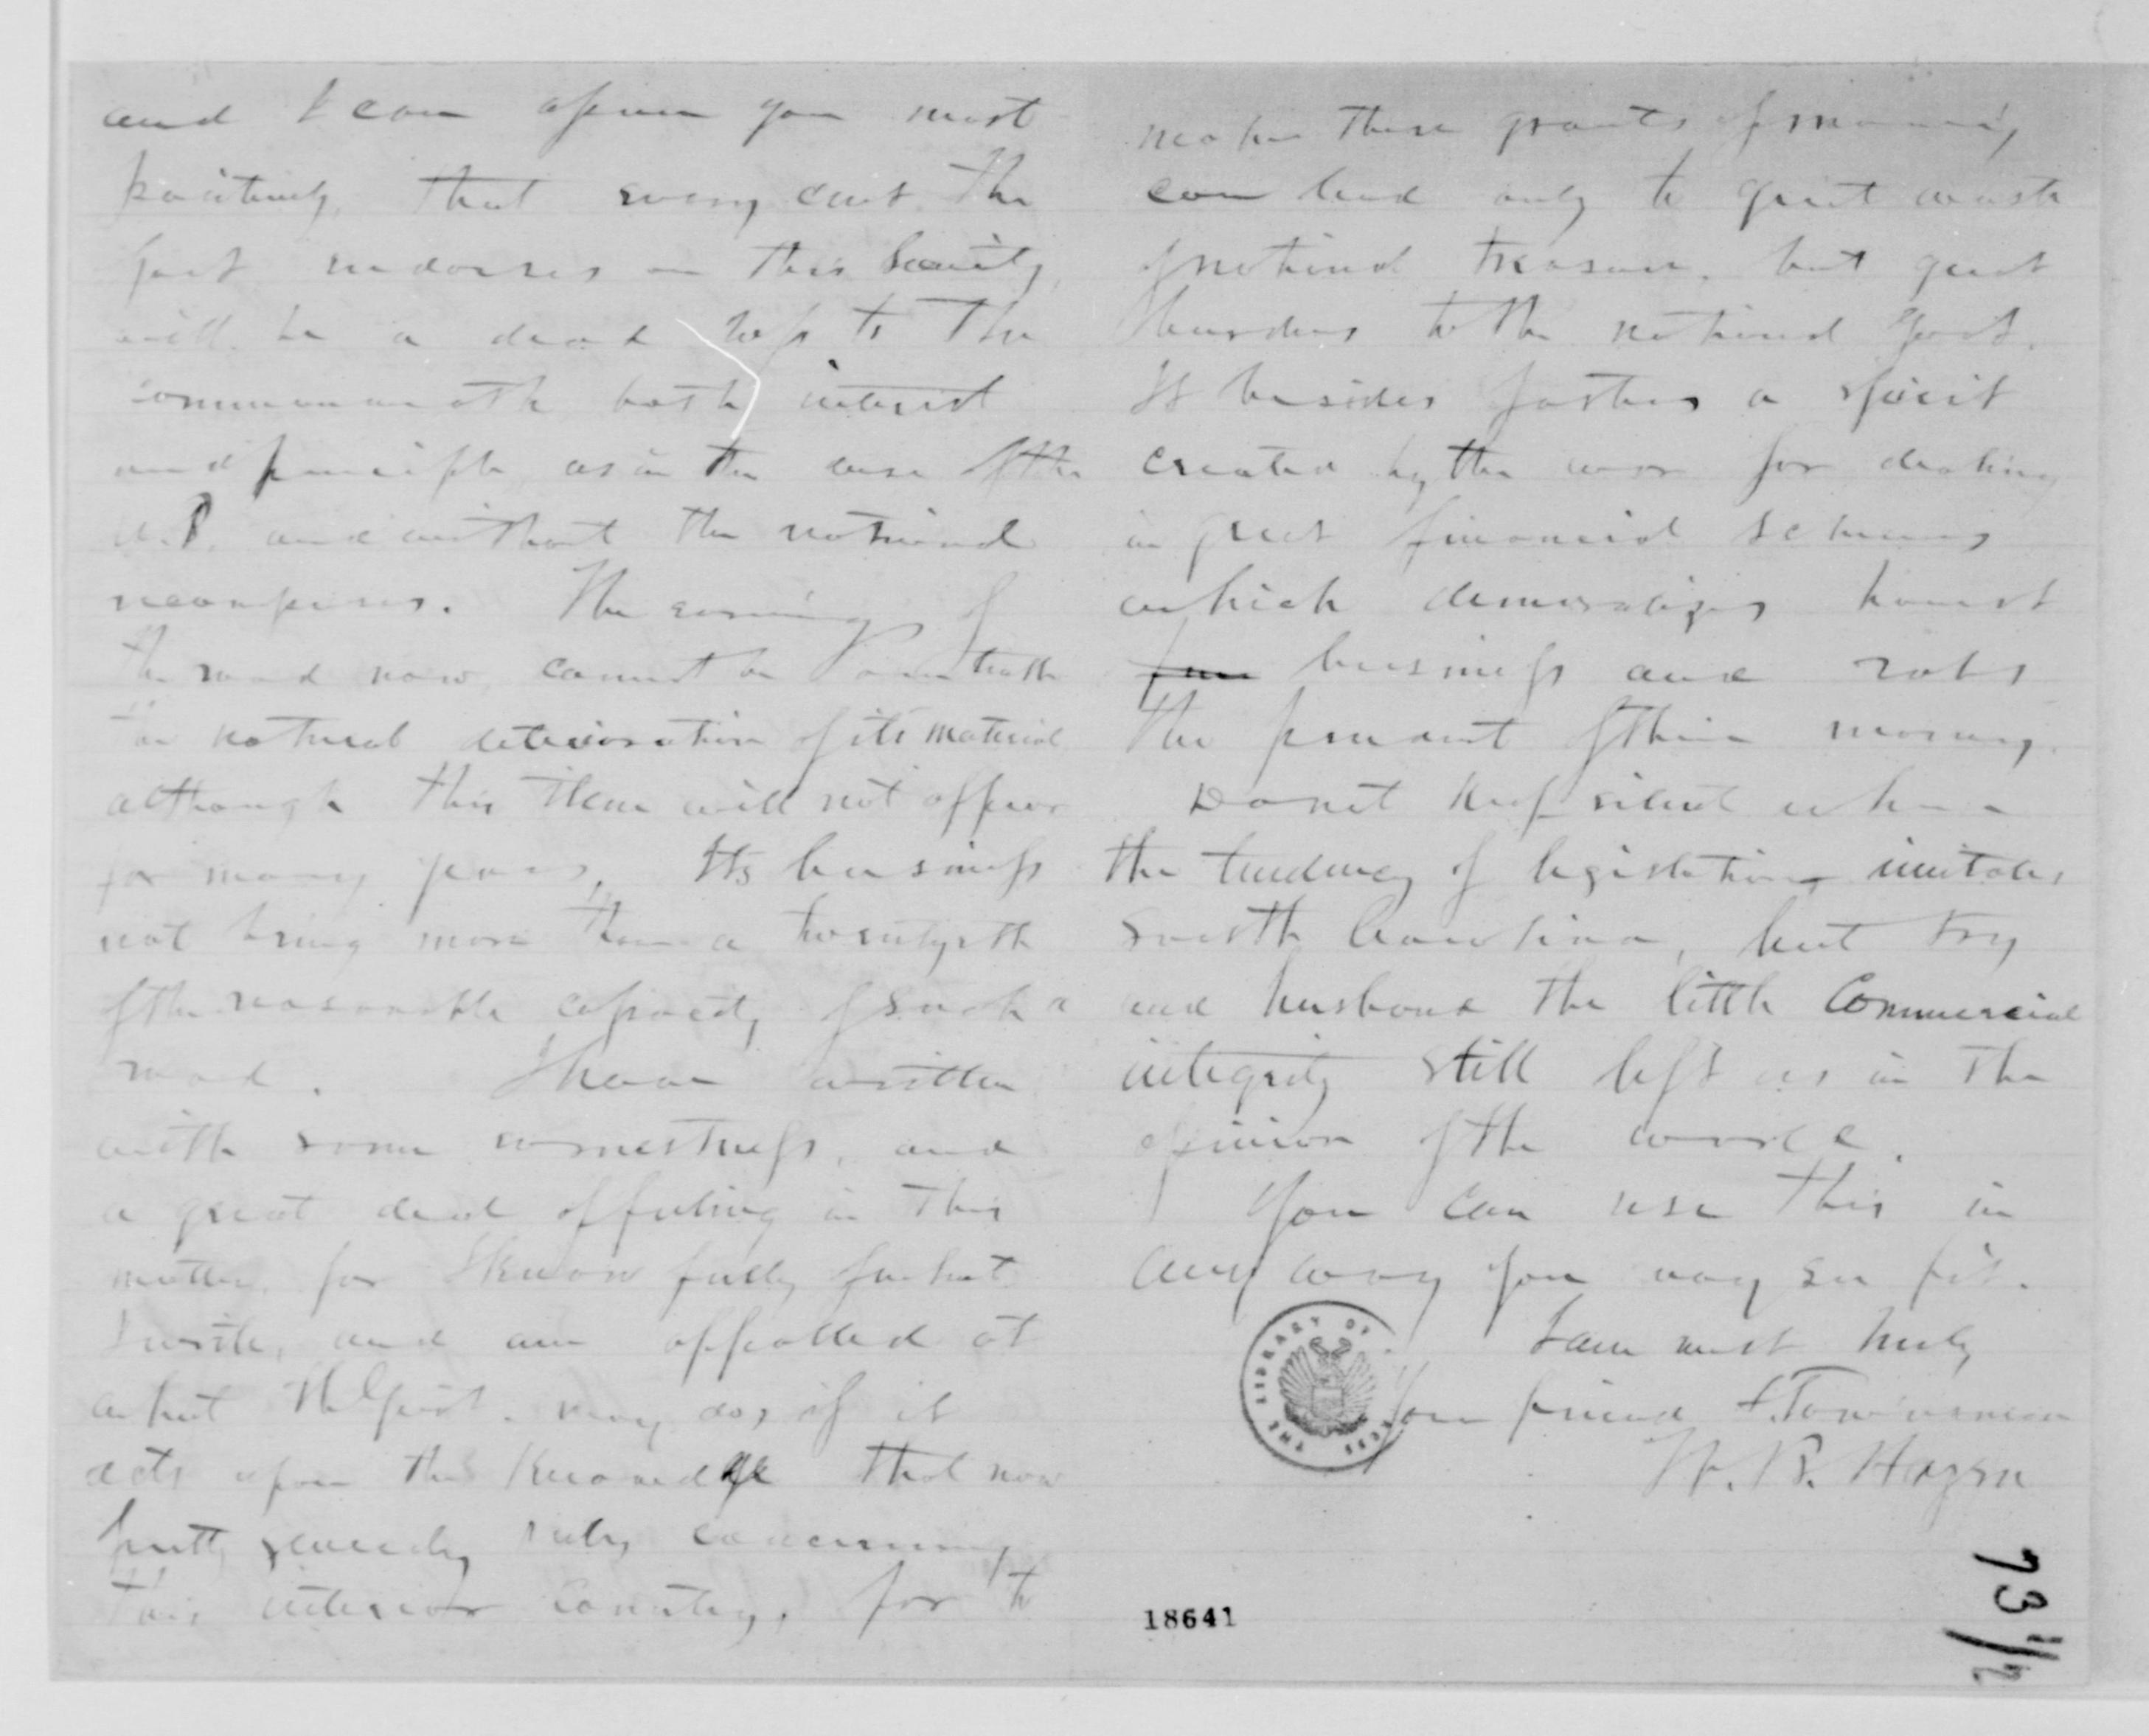 and I can assure you most
positively, that every cent the
Govt endorses on this security,
will be a dead loss to the
commonwealth both interest
and principle, as in the case of the
U.P. and without the national
recompense. The earnings of
the road now, cannot be
the natural deterioration of its material
although this item will not appear
for many years, Its business
not being more than a twentyeth
of the reasonable capacity of such a
road. I have written
with some earnestness, and
a great deal of feeling in this
matter, for I know fully of what
I write, and am appalled at
what the Govt. may do, if it
acts upon the knowledge that now
pretty generally rules concerning
this interior country, for to
make these grants of money
can lead only to great waste
of national treasure, but great
burdens to the national Govt.
It besides fosters a spirit
created by the war for dealing
in great financial schemes
which demoralizes honest
business and robs
the prudent of their money.
Do not keep silent when
the tendency of legislation imitates
South Carolina, but try
and husband the little Commercial
integrity still left us in the
opinion of the world.
You can use this in
any way you may see fit.
I am most truly
Your friend & Townsman
W. B. Hazen
THE LIBRARY OF
18641
73 1/2